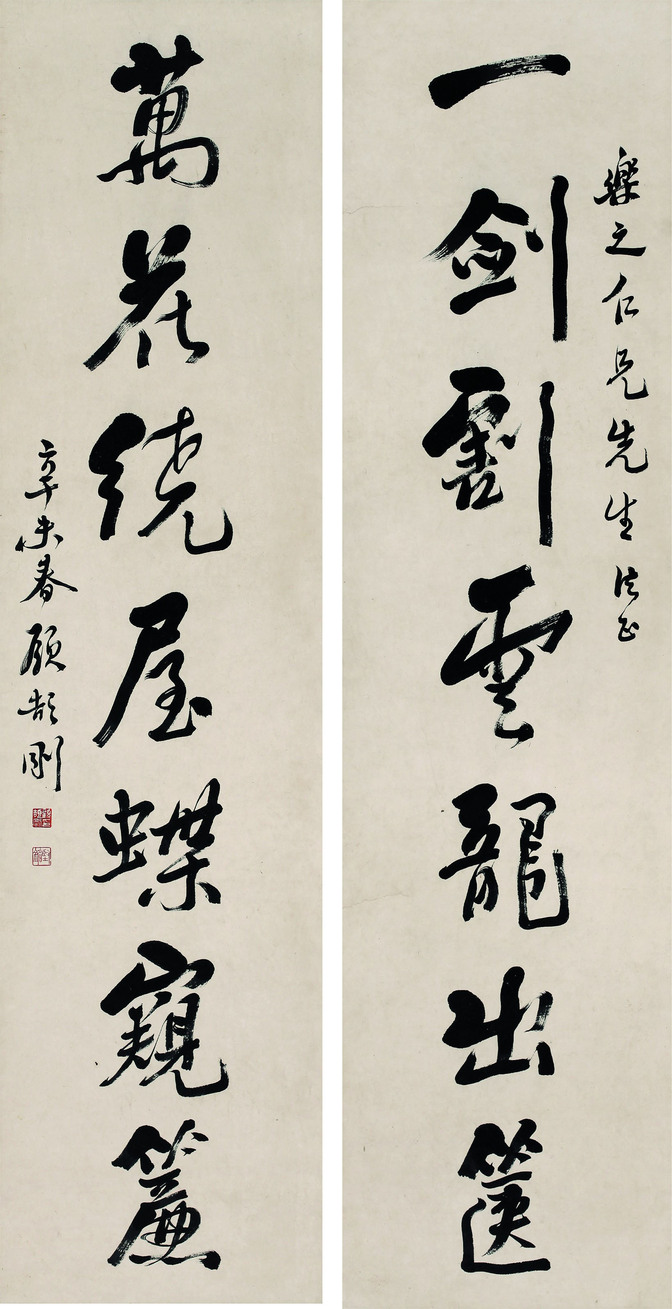 樂之仁兄先生法正
一劍割雲龍出篋
萬花繞屋蝶窺簾
辛未春顧頡剛